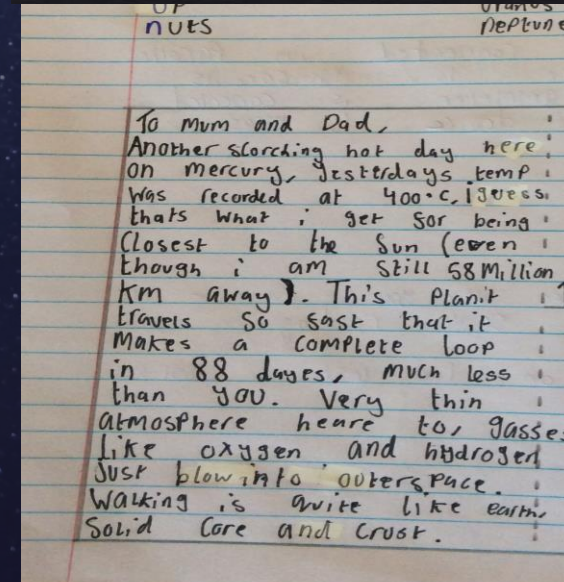 UP
nuts
uranus
neptune
To mum and Dad,
Another scorching hot day here
on mercury, yesterdays temp
was recorded at 400°c, i guess
thats what i get for being
Closest to the Sun (even
though i am still 58 Million
Km away). This planit
travels so fast that it
makes a complete loop
in 88 dayes, much less
than you. Very thin
atmosphere heare to, gasses
like oxygen and hydrogen
Just blow into outerspace.
Walking is quite like earth,
Solid Core and Crust.